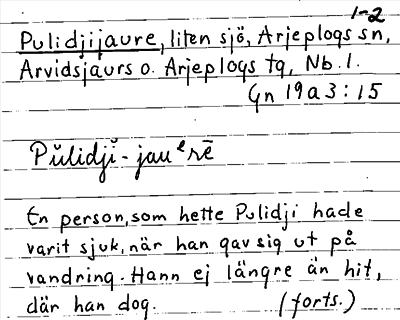 1-2
Pulidjijaure, liten sjö, Arjeplogs sn,
Arvidsjaurs o. Arjeplogs tg, Nb. l.
Gn 19 a 3 : 15
Pŭlidjĭ - jauᵉrē
En person, som hette Pulidji hade
varit sjuk, när han gav sig ut på
vandring. Hann ej längre än hit,
där han dog. (forts.)